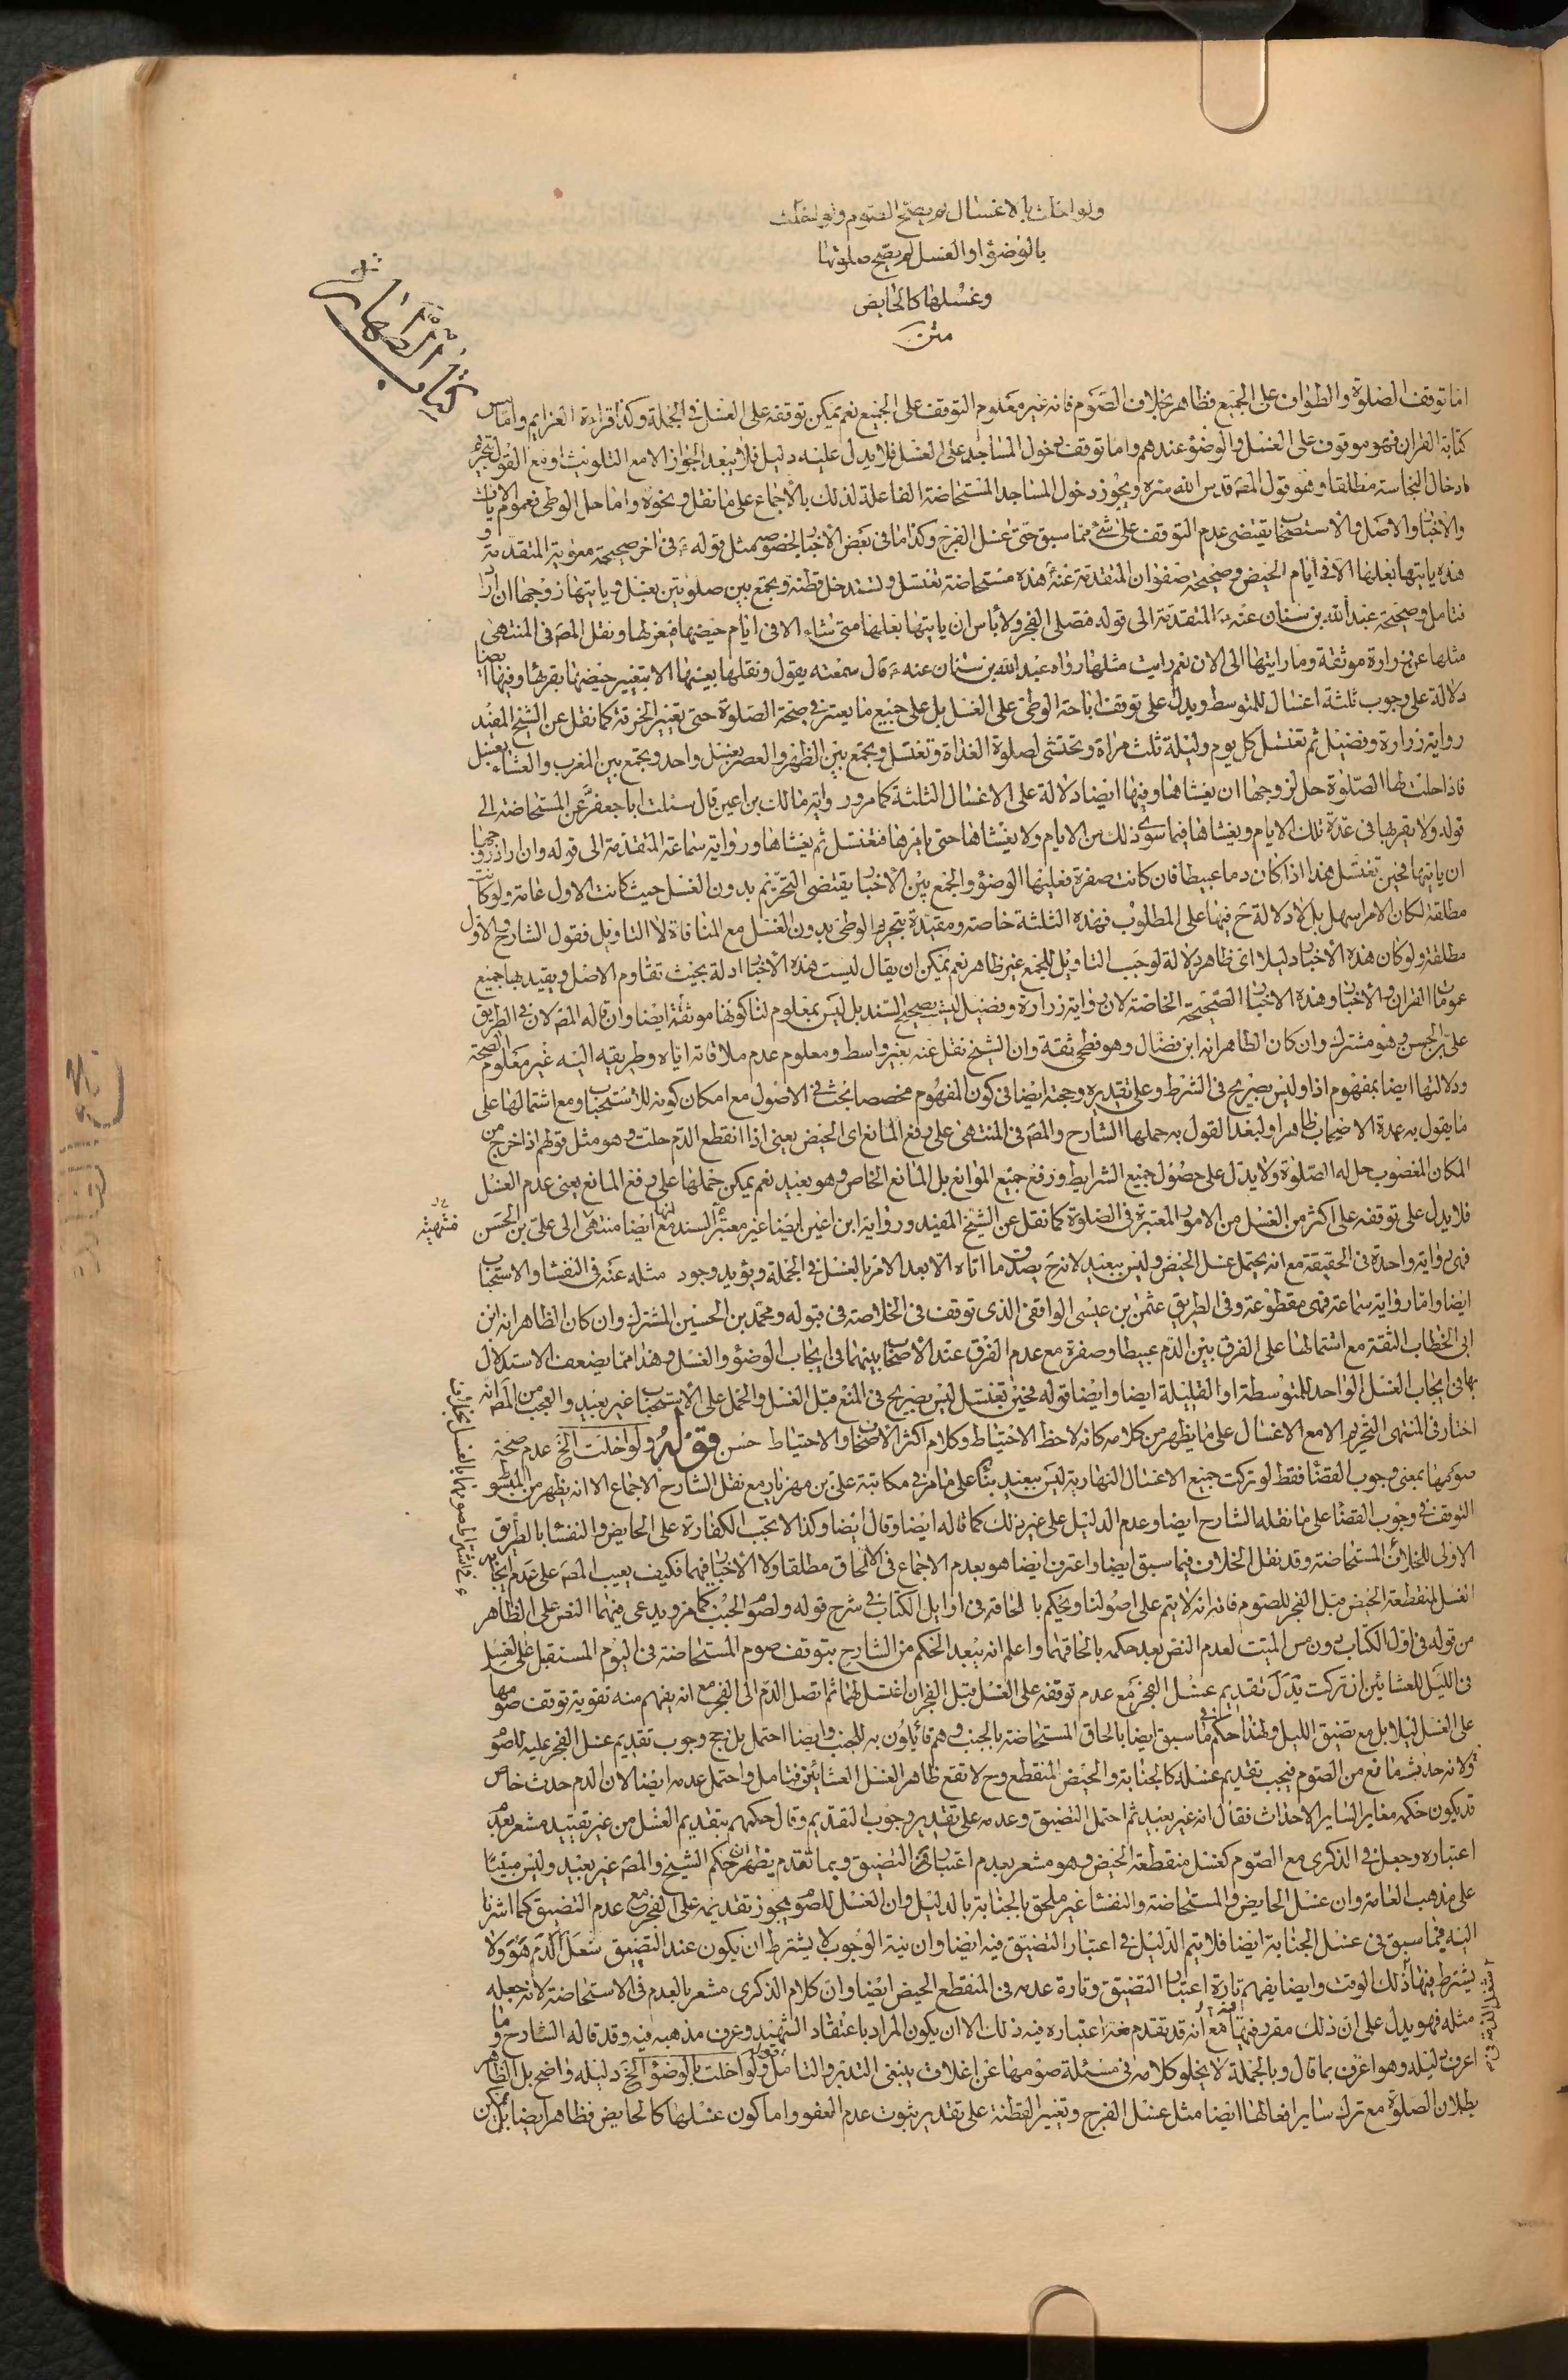 ولو اخلت بالاغسال لم يصح الصوم ولو اخلت
بالوضوء او الغسل لم يصح صلوتها
وغسلها كالحايض
متن
كتاب الطهارة
اما توقف الصلوة والطواف على الجميع فظاهر بخلاف الصوم فانه غير معلوم التوقف على الجميع نعم يمكن توقفه على الغسل فى الجملة وكذا قراءة العزايم واما مس
كتابة القران فهو موقوف على الغسل والوضوء عندهم واما توقف دخول المساجد على الغسل فلا يدل عليه دليل فلا يبعد الجواز الا مع التلويث او مع القول بتحريم
ادخال النجاسة مطلقا وهو قول المصّ قدس الله سره ويجوز دخول المساجد المستحاضة الفاعلة لذلك بالاجماع على ما نقل ونحوه واما حل الوطى فعموم الايات
والاخبار والاصل والاستصحاب يقتضى عدم التوقف على شئ مما سبق حتى غسل الفرج وكذا ما فى بعض الاخبار بخصوصه مثل قوله ع فى اخر صحيحة معوية المتقدمة و
هذه ياتيها بعلها الا فى ايام الحيض وصحيحة صفوان المتقدمة عنه هذه مستحاضة تغتسل وتستدخل قطنة وتجمع بين صلوتين بغسل وياتيها زوجها ان اراد
فتامل وصحيحة عبد الله بن سنان عنه ع المتقدمة الى قوله فتصلى الفجر ولا باس ان ياتيها بعلها متى شاء الا فى ايام حيضها فيعزلها ونقل المصّ فى المنتهى
مثلها عن زرارة موثقة وما رايتها الى الان نعم رايت مثلها رواه عبد الله بن سنان عنه ع قال سمعته يقول ونقلها بعينها الا بتغيير حيضها بقرئها وفيها ايضا
دلالة على وجوب ثلثة اغسال للمتوسط ويدل على توقف اباحة الوطى على الغسل بل على جميع ما يعتبر فى صحة الصلوة حتى تغيير الخرقة كما نقل عن الشيخ المفيد
رواية زرارة وفضيل ثم تغتسل كل يوم وليلة ثلث مراة وتحتشى لصلوة الغداة وتغتسل وتجمع بين الظهر والعصر بغسل واحد وتجمع بين المغرب والعشاء بغسل
فاذا حلت لها الصلوة حل لزوجها ان يغشاها وفيها ايضا دلالة على الاغسال الثلثة كما مر ورواية مالك بن اعين قال سئلت ابا جعفر ع عن المستحاضة الى
قوله ولا يقربها فى عدة تلك الايام ويغشاها فيما سوى ذلك من الايام ولا يغشاها حتى يامرها فتغتسل ثم يغشاها ورواية سماعة المتقدمة الى قوله وان اراد زوجها
ان ياتيها فحين تغتسل هذا اذا كان دما عبيطا فان كانت صفرة فعليها الوضوء والجمع بين الاخبار يقتضى التحريم بدون الغسل حيث كانت الاول عامة ولو كانت
مطلقة لكان الامر اسهل بل لا دلالة ح فيها على المطلوب فهذه الثلثة خاصة ومقيدة بتحريم الوطى بدون الغسل مع المنافاة لا التاويل فقول الشارح والاول
مطلقة ولو كان هذه الاخبار دليلا اى ظاهر دلالة لوجب التاويل للجمع غير ظاهر نعم يمكن ان يقال ليست هذه الاخبار ادلة بحيث تقاوم الاصل ويقيد بها جميع
عمومات القران والاخبار وهذه الاخبار الصحيحة الخاصة لان رواية زرارة وفضيل ليست بصحيح السند بل ليس بمعلوم لنا كونها موثقة ايضا وان قاله المصّ لان فى الطريق
على بن الحسن وهو مشترك وان كان الظاهر انه ابن فضال وهو فطحى ثقة وان الشيخ نقل عنه بغير واسط ومعلوم عدم ملاقاته اياه وطريقه اليه غير معلوم الصحة
ودلالتها ايضا بمفهوم اذا وليس بصريح فى الشرط وعلى تقديره وحجته ايضا فى كون المفهوم مخصصا بحث فى الاصول مع امكان كونه للاستحباب ومع اشتمالها على
ما يقول به عمدة الاصحاب ظاهرا ولبعد القول به حملها الشارح والمصّ فى المنتهى على رفع المانع اى الحيض يعنى اذا انقطع الدم حلت وهو مثل قولهم اذا خرج من
المكان المغصوب حل له الصلوة ولا يدل على حصول جميع الشرايط ورفع جميع الموانع بل المانع الخاص وهو بعيد نعم يمكن حملها على رفع المانع يعنى عدم الغسل
فلا يدل على توقفه على اكثر من الغسل من الامور المعتبرة فى الصلوة كما نقل عن الشيخ المفيد ورواية ابن اعين ايضا غير معتبر السند مع انها ايضا منتهى الى على بن الحسن
فهى رواية واحدة فى الحقيقة مع انه يحتمل غسل الحيض وليس ببعيد لانه ح يصدق ما اتاه الا بعد الامر بالغسل فى الجملة ويؤيد وجود مثله عنه فى النفساء والاستحباب
ايضا واما رواية سماعة فهى مقطوعة وفى الطريق عثمن بن عيسى الواقفى الذى توقف فى الخلاصة فى قبوله ومحمد بن الحسين المشترك وان كان الظاهر انه ابن
ابى الخطاب الثقة مع اشتمالها على الفرق بين الدم عبيطا وصفرة مع عدم الفرق عند الاصحاب بينهما فى ايجاب الوضوء والغسل وهذا مما يضعف الاستدلال
بها فى ايجاب الغسل الواحد للمتوسطة او القليلة ايضا وايضا قوله فحين تغتسل ليس بصريح فى المنع قبل الغسل والحمل على الاستحباب غير بعيد والعجب من المصّ انه
اختار فى المنتهى التحريم الا مع الاغسال على ما يظهر من كلامه كانه لاحظ الاحتياط وكلام اكثر الاصحاب والاحتياط حسن قوله ولو اخلت الخ عدم صحة
صومها بمعنى وجوب القضاء فقط لو تركت جميع الاغسال النهارية ليس ببعيد بناء على ما مر فى مكاتبة على بن مهزيار مع نقل الشارح الاجماع الا انه يظهر من المبسوط
التوقف فى وجوب القضاء على ما نقله الشارح ايضا وعدم الدليل على غير ذلك كما قاله ايضا وقال ايضا وكذا لا يجب الكفارة على الحايض والنفساء بالطريق
الاولى للخلاف المستحاضة وقد نقل الخلاف فيما سبق ايضا واعترف ايضا هو بعدم الاجماع فى الالحاق مطلقا ولا الاخبار فيهما فكيف يعيب المصّ على عدم ايجاب
الغسل المنقطعة الحيض قبل الفجر للصوم فانه انه لا يتم على اصولنا ويحكم بالحاقه فى اوايل الكتاب فى شرح قوله ولصوم الجنب كما مر ويدعى فيهما النص على الظاهر
من قوله فى اول الكتاب دون مس الميت لعدم النص بعد حكمه بالحاقهما واعلم انه يبعد الحكم من الشارح بتوقف صوم المستحاضة فى اليوم المستقبل على الغسل
فى الليل للعشائين ان تركت بدل تقديم غسل الفجر مع عدم توقفه على الغسل قبل الفجر ان اغتسل لهما ثم اتصل الدم الى الفجر مع انه يفهم منه تقوية توقف صومها
على الغسل ليلا بل مع تضيق الليل ولهذا حكم فيما سبق ايضا بالحاق المستحاضة بالجنب وهم قائلون به للجنب وايضا احتمل بل رجح وجوب تقديم غسل الفجر عليه للصوم
ولانه حدث مانع من الصوم فيجب تقديم غسله كالجنابة والحيض المنقطع وح لا تقع ظاهر الغسل العشائين فتامل واحتمل عدمه ايضا لان الدم حدث خاص
قد يكون حكمه مغاير السائر الاحداث فقال انه غير بعيد ثم احتمل التضيق وعدمه على تقدير وجوب التقديم وقال حكمهم بتقديم الغسل من غير تقييد مشعر بعدم
اعتباره وجعل فى الذكرى مع الصوم كغسل منقطعة الحيض وهو مشعر بعدم اعتبار التضيق وبما تقدم يظهر ان حكم الشيخ والمصّ غير بعيد وليس مبنيا
على مذهب العامة وان غسل الحايض والمستحاضة والنفساء غير ملحق بالجنابة بالدليل وان الغسل للصوم يجوز تقديمه على الفجر مع عدم التضيق كما اشرنا
اليه فيما سبق فى غسل الجنابة ايضا فلا يتم الدليل فى اعتبار التضيق فيه ايضا وان نية الوجوب لا يشترط ان يكون عند التضيق نعم الدم هو ولا
يشترط فيها ذلك الوقت وايضا يفهم تارة اعتبار التضيق وتارة عدمه فى المنقطع الحيض ايضا وان كلام الذكرى مشعر بالعدم فى الاستحاضة لانه جعله
مثله فهو يدل على ان ذلك مقرر فيها مع انه قد تقدم منه اعتباره فيه ذلك الا ان يكون المراد باعتقاد الشهيد وعرف مذهبه فيه وقد قاله الشارح وما
اعرف دليله وهو اعرف بما قال وبالجملة لا يخلو كلامه فى مسئلة صومها عن اغلاق ينبغى التدبر والتامل قوله ولو اخلت بالوضوء الخ دليله واضح بل الظاهر
بطلان الصلوة مع ترك ساير افعالها ايضا مثل غسل الفرج وتغيير القطنة على تقدير ثبوت عدم العفو واما كون غسلها كالحايض فظاهر ايضا بل يمكن